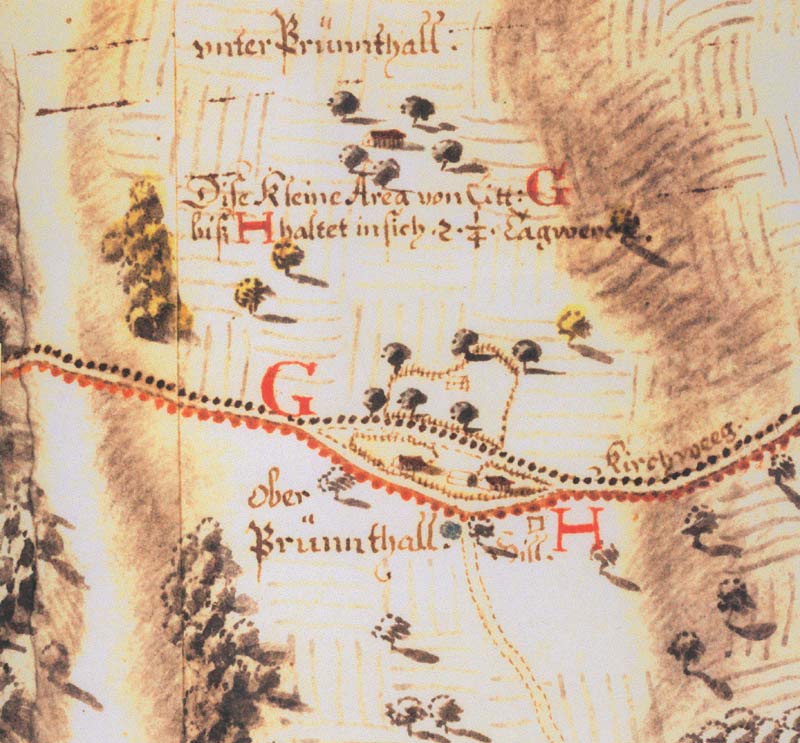 vnter Brünnthall.
Dise Kleine Area von Litt: G
biß H haltet in sich 2 ¼ Tagwerck.
G
Kirchweeg.
Ober
Brünnthall.
H